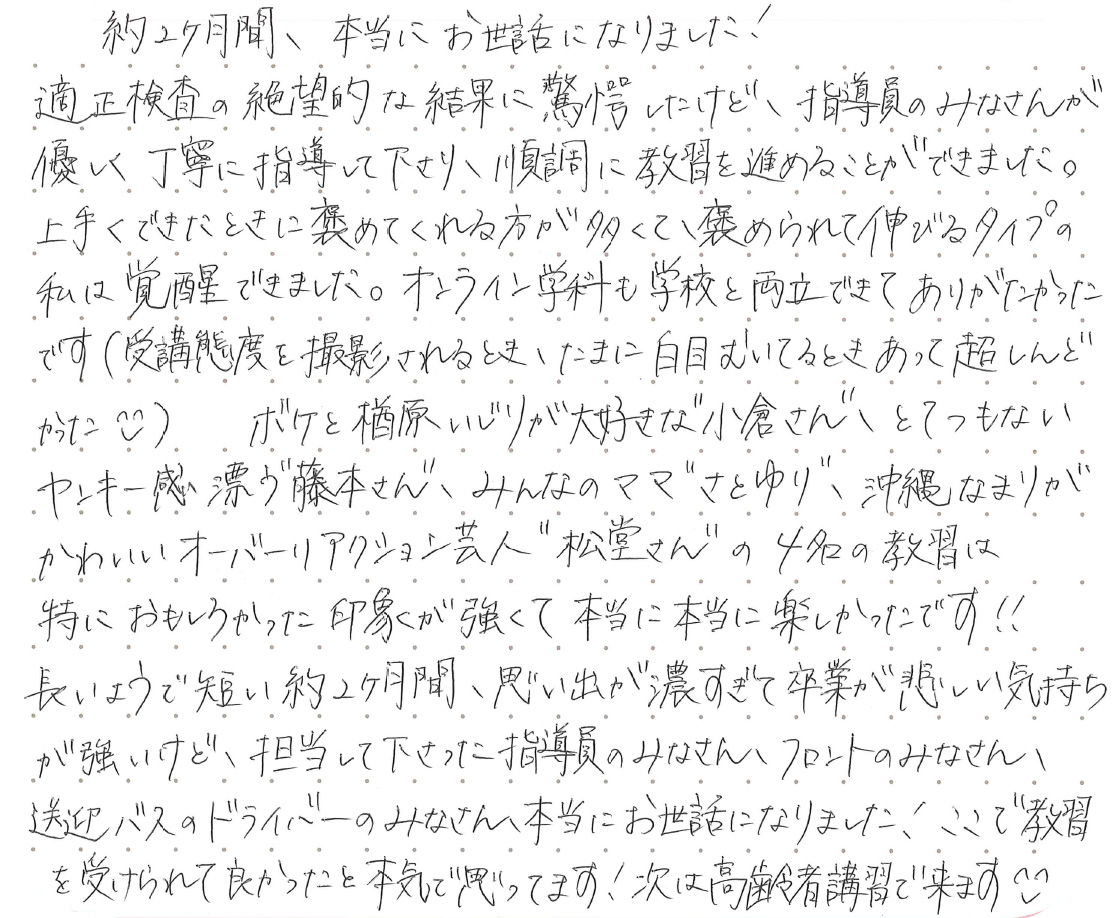 約2ヶ月間、本当にお世話になりました!
適正検査の絶望的な結果に驚愕したけど、指導員のみなさんが
優しく丁寧に指導して下さり、順調に教習を進めることができました。
上手くできたときに褒めてくれる方が多くて、褒められて伸びるタイプの
私は覚醒できました。オンライン学科も学校と両立できてありがたかった
です(受講態度を撮影されるとき、たまに白目むいてるときあって超しんど
かった^^) ボケと楢原いじりが大好きな"小倉さん"、とてつもない
ヤンキー感漂う"藤本さん"、みんなのママ"さとゆり"、沖縄なまりが
かわいいオーバーリアクション芸人"松堂さん"の4名の教習は
特におもしろかった印象が強くて本当に本当に楽しかったです!!
長いようで短い約2ヶ月間、思い出が濃すぎて卒業が悲しい気持ち
が強いけど、担当して下さった指導員のみなさん、フロントのみなさん、
送迎バスのドライバーのみなさん、本当にお世話になりました!ここで教習
を受けられて良かったと本気で思ってます!次は高齢者講習で来ます^^